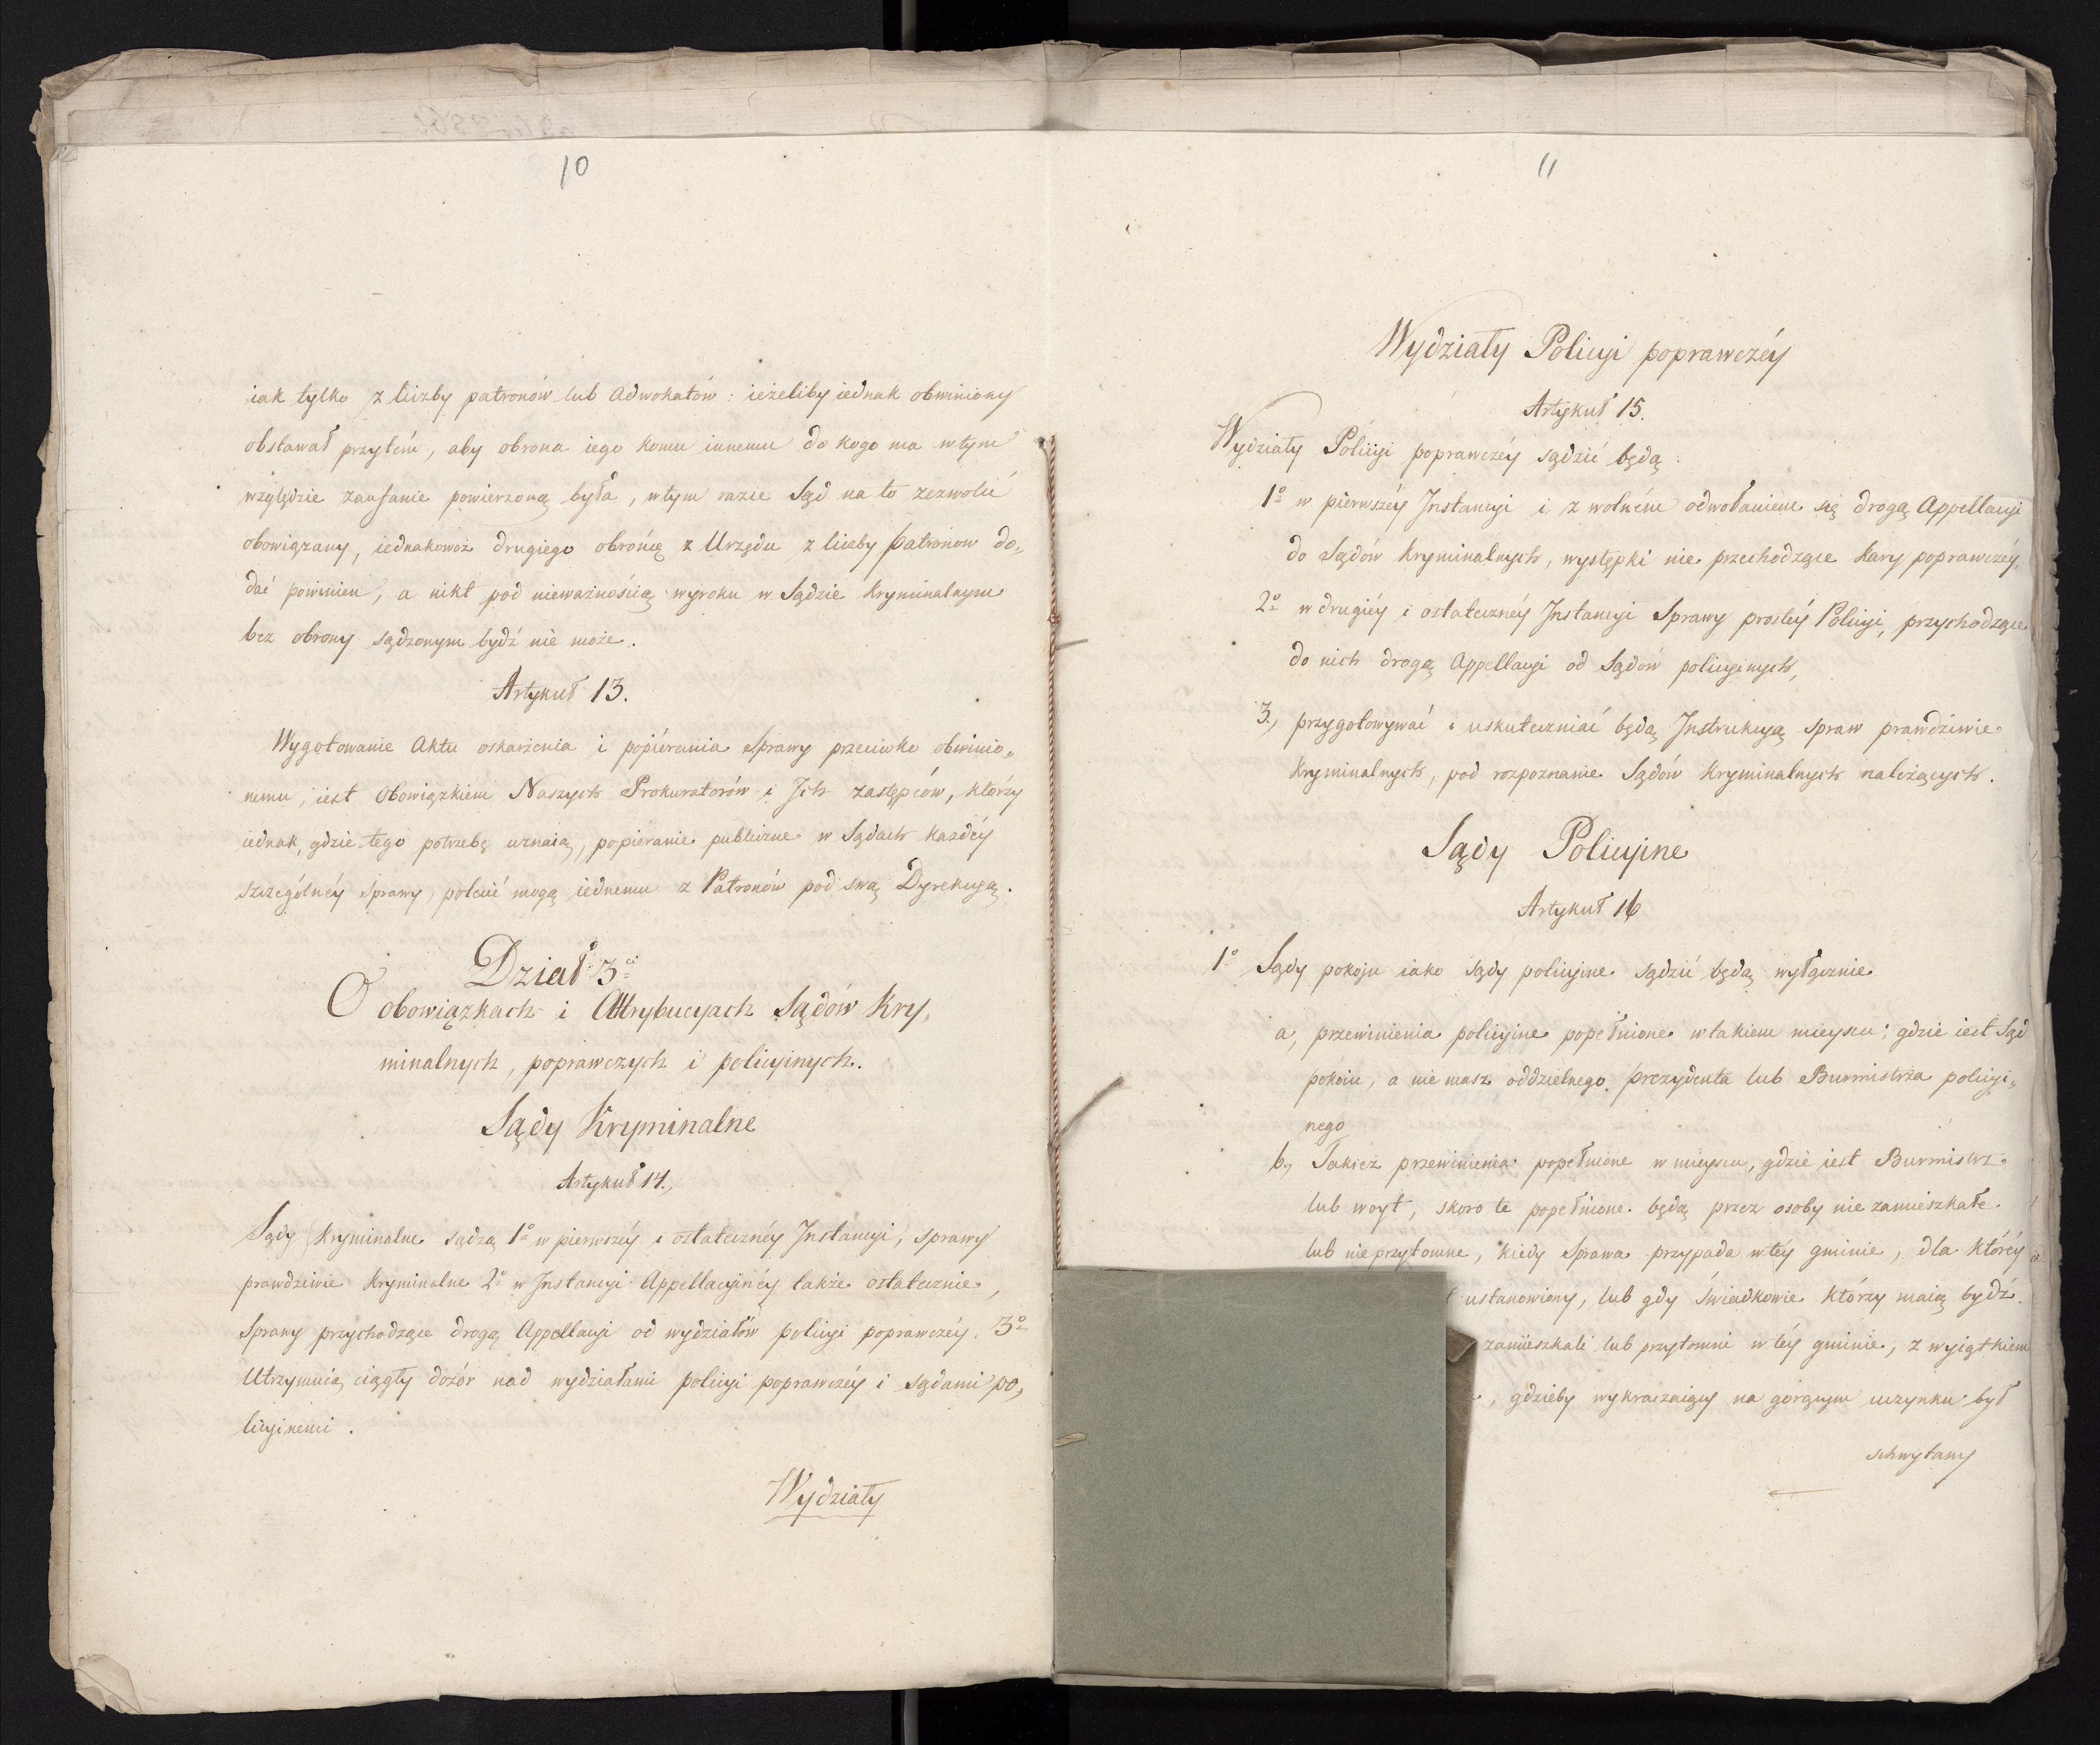 10
iak tylko z liczby patronów lub Adwokatów : ieżeliby iednak obwiniony
obstawał przytém, aby obrona iego komu innemu do kogo ma wtym
względzie zaufanie powierzoną była, wtym razie Sąd na to zezwolić
obowiązany, iednakowoż drugiego obrońcę z Urzędu z liczby Patronow do„
dać powinien, a nikt pod nieważnością wyroku w Sądzie Kryminalnym
bez obrony sądzonym bydź nie może.
Artykuł 13.
Wygotowanie Aktu oskarżenia i popiérania Sprawy przeciwko obwinio„
nemu, iest Obowiązkiem Naszych Prokuratorów i Ich zastępców, którzy
iednak, gdzie tego potrzebę uznaią, popieranie publiczne w Sądach każdéy
szczególnéy sprawy, polecić mogą iednemu z Patronów pod swą Dyrekcyą.
Dział 3ci
O obowiązkach i Attrybucyach Sądów Kry„
minalnych, poprawczych i policyinych.
Sądy Kryminalne
Artykuł 14.,
Sądy Kryminalne sądzą 1o w pierwszéy i ostatecznéy Instancyi, sprawy
prawdziwie kryminalne 2o w Instancyi Appellacyinéy także ostatecznie,
Sprawy przychodzące drogą Appellacyi od wydziałów policyi poprawczéy. 3o
Utrzymuią ciągły dozór nad wydziałami policyi poprawczéy i sądami po„
licyinemi.
Wydziały
11
Wydziały Policyi poprawczéy
Artykuł 15.
Wydziały Policyi poprawczéy sądzić będą:
1o w pierwszéy Instancyi i z wolném odwołaniem się drogą Appellacyi
do sądów kryminalnych, występki nie przechodzące kary poprawczéy,
2o w drugiéy i ostatecznéy Instancyi Sprawy prostéy Policyi, przychodzące
do nich drogą Appellacyi od Sądów policyinych,
3., przygotowywać i uskuteczniać będą Instrukcyą spraw prawdziwie
kryminalnych, pod rozpoznanie Sądów kryminalnych należących.
Sądy Policyine
Artykuł 16
1o Sądy pokoju iako sądy policyine sądzić będą wyłącznie
a, przewinienia policyine popełnione wtakiem mieyscu; gdzie iest Sąd
pokoiu, a nie masz oddzielnego prezydenta lub Burmistrza policyi„
nego
b, Takież przewinienia popełnione w mieyscu, gdzie iest Burmistrz
lub woyt, skoro te popełnione będą przez osoby nie zamieszkałe
lub nie przytomne, kiedy Sprawa przypada wtéy gminie, dla któréy
ustanowiony, lub gdy świadkowie którzy maią bydź
zamieszkali lub przytomni w téy gminie, z wyiątkiem
, gdzieby wykraczaiący na gorącym uczynku był
schwytany